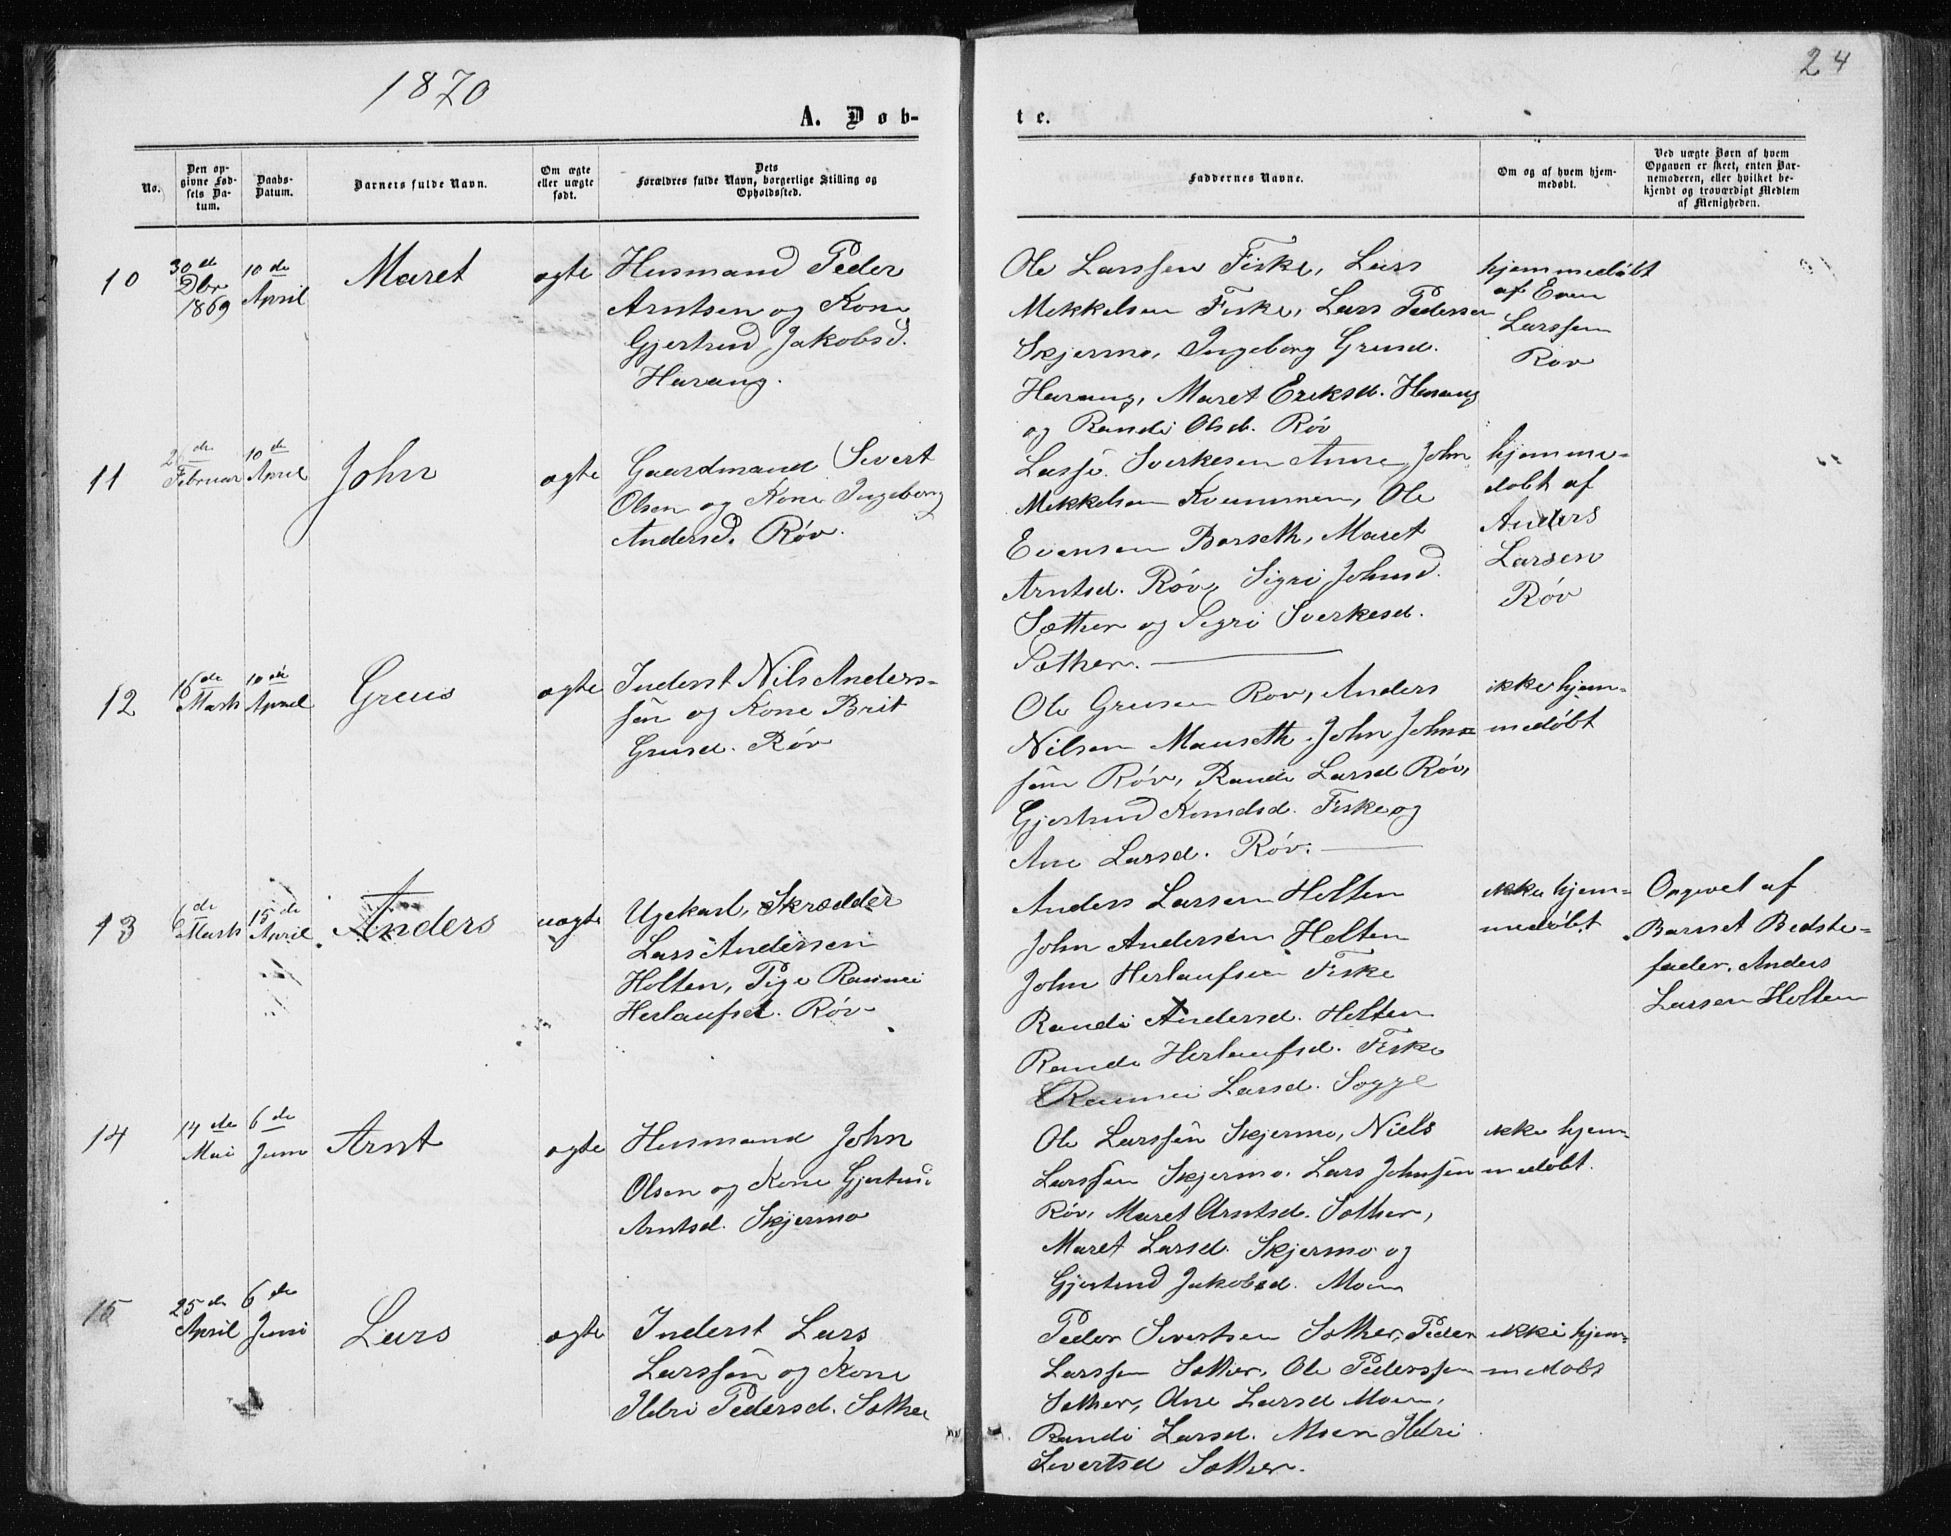 1870
24
A. Døb-
te.
No.
Den op-
givne Fød-
sels Da-
tum.
Daabs-
Datum.
Barnets fulde Navn.
Om ægte
eller uægte
født.
Dets
Forældres fulde Navn, borgerlige Stilling og
Opholdssted.
Faddernes Navne.
Om og af hvem hjem-
medøbt.
Ved uægte Børn af hvem
Opgaven er skeet, enten Bar-
nemoderen, eller hvilket be-
kjendt og troværdigt Medlem
af Menigheden.
10
30 de
Dbr
1869
10 de
April
Maret
ægte
Husmand Peder
Arntsen og Kone
Gjertrud Jakobsd.
Harang.
Ole Larssen Fiske, Lars
Mekkelsen Fiske, Lars Pedersen
Skjermo, Ingeborg Grusd.
Harang, Maret Eriksd. Harang
og Randi Olsd. Røv
hjemmedøbt
af Even
Larssen
Røv
11
de
Februar
10 de
April
John
ægte
Gaardmand Sivert
Olsen og Kone Ingeborg
Andersd. Røv.
Lasse Sverkesen Aune, John
Mekkelsen Kvammen, Ole
Evensen Børseth, Maret
Arntsd. Røv, Sigri Johnsd.
Sæther og Sigri Sverkesd.
Sæther.
hjemme-
døbt af
Anders
Larsen
Røv
12
16 de
Marts
10 de
April
Greus
ægte
Inderst Nils Anders-
sen og Kone Brit
Grusd. Røv
Ole Grusen Røv, Anders
Nilsen Mauseth, John John-
sen Røv, Randi Larsd Røv,
Gjertrud Knudsd. Fiske og
Ane Larsd. Røv.
ikke hjem-
medøbt
13
6 de
Marts
15 de
April
Anders
uægte
Ugekarl, Skrædder
Lars Andersen
Holten, Pige Rannei
Herlaufsd. Røv
Anders Larsen Holten
John Andersen Holten
John Herlaufsen Fiske
Randi Andersd. Holten
Randi Herlaufsd. Fiske
Rannei Larsd. Sogge
ikke hjem-
medøbt
Opgivet af
Barnet Bedste-
fader, Anders
Larsen Holten
14
14 de
Mai
6 de
Juni
Arnt
ægte
Husmand John
Olsen og Kone Gjertrud
Arntsd. Skjermo
Ole Larssen Skjermo, Niels
Larssen Skjermo, Lars Johnsen
Røv, Maret Arntsd. Sæther,
Maret Larsd. Skjermo og
Gjertrud Jakobsd. Moen
ikke hjem-
medøbt.
15
25 de
April
6 de
Juni
Lars
ægte
Inderst Lars
Larssen og Kone
Ildri Pedersd. Sæther
Peder Sivertsen Sæther, Peder
Larssen Sæther, Ole Pederssen
Sæther, Ane Larsd Moen,
Randi Larsd. Moen Ildri
Sivertsd Sæther.
ikke hjem-
medøbt